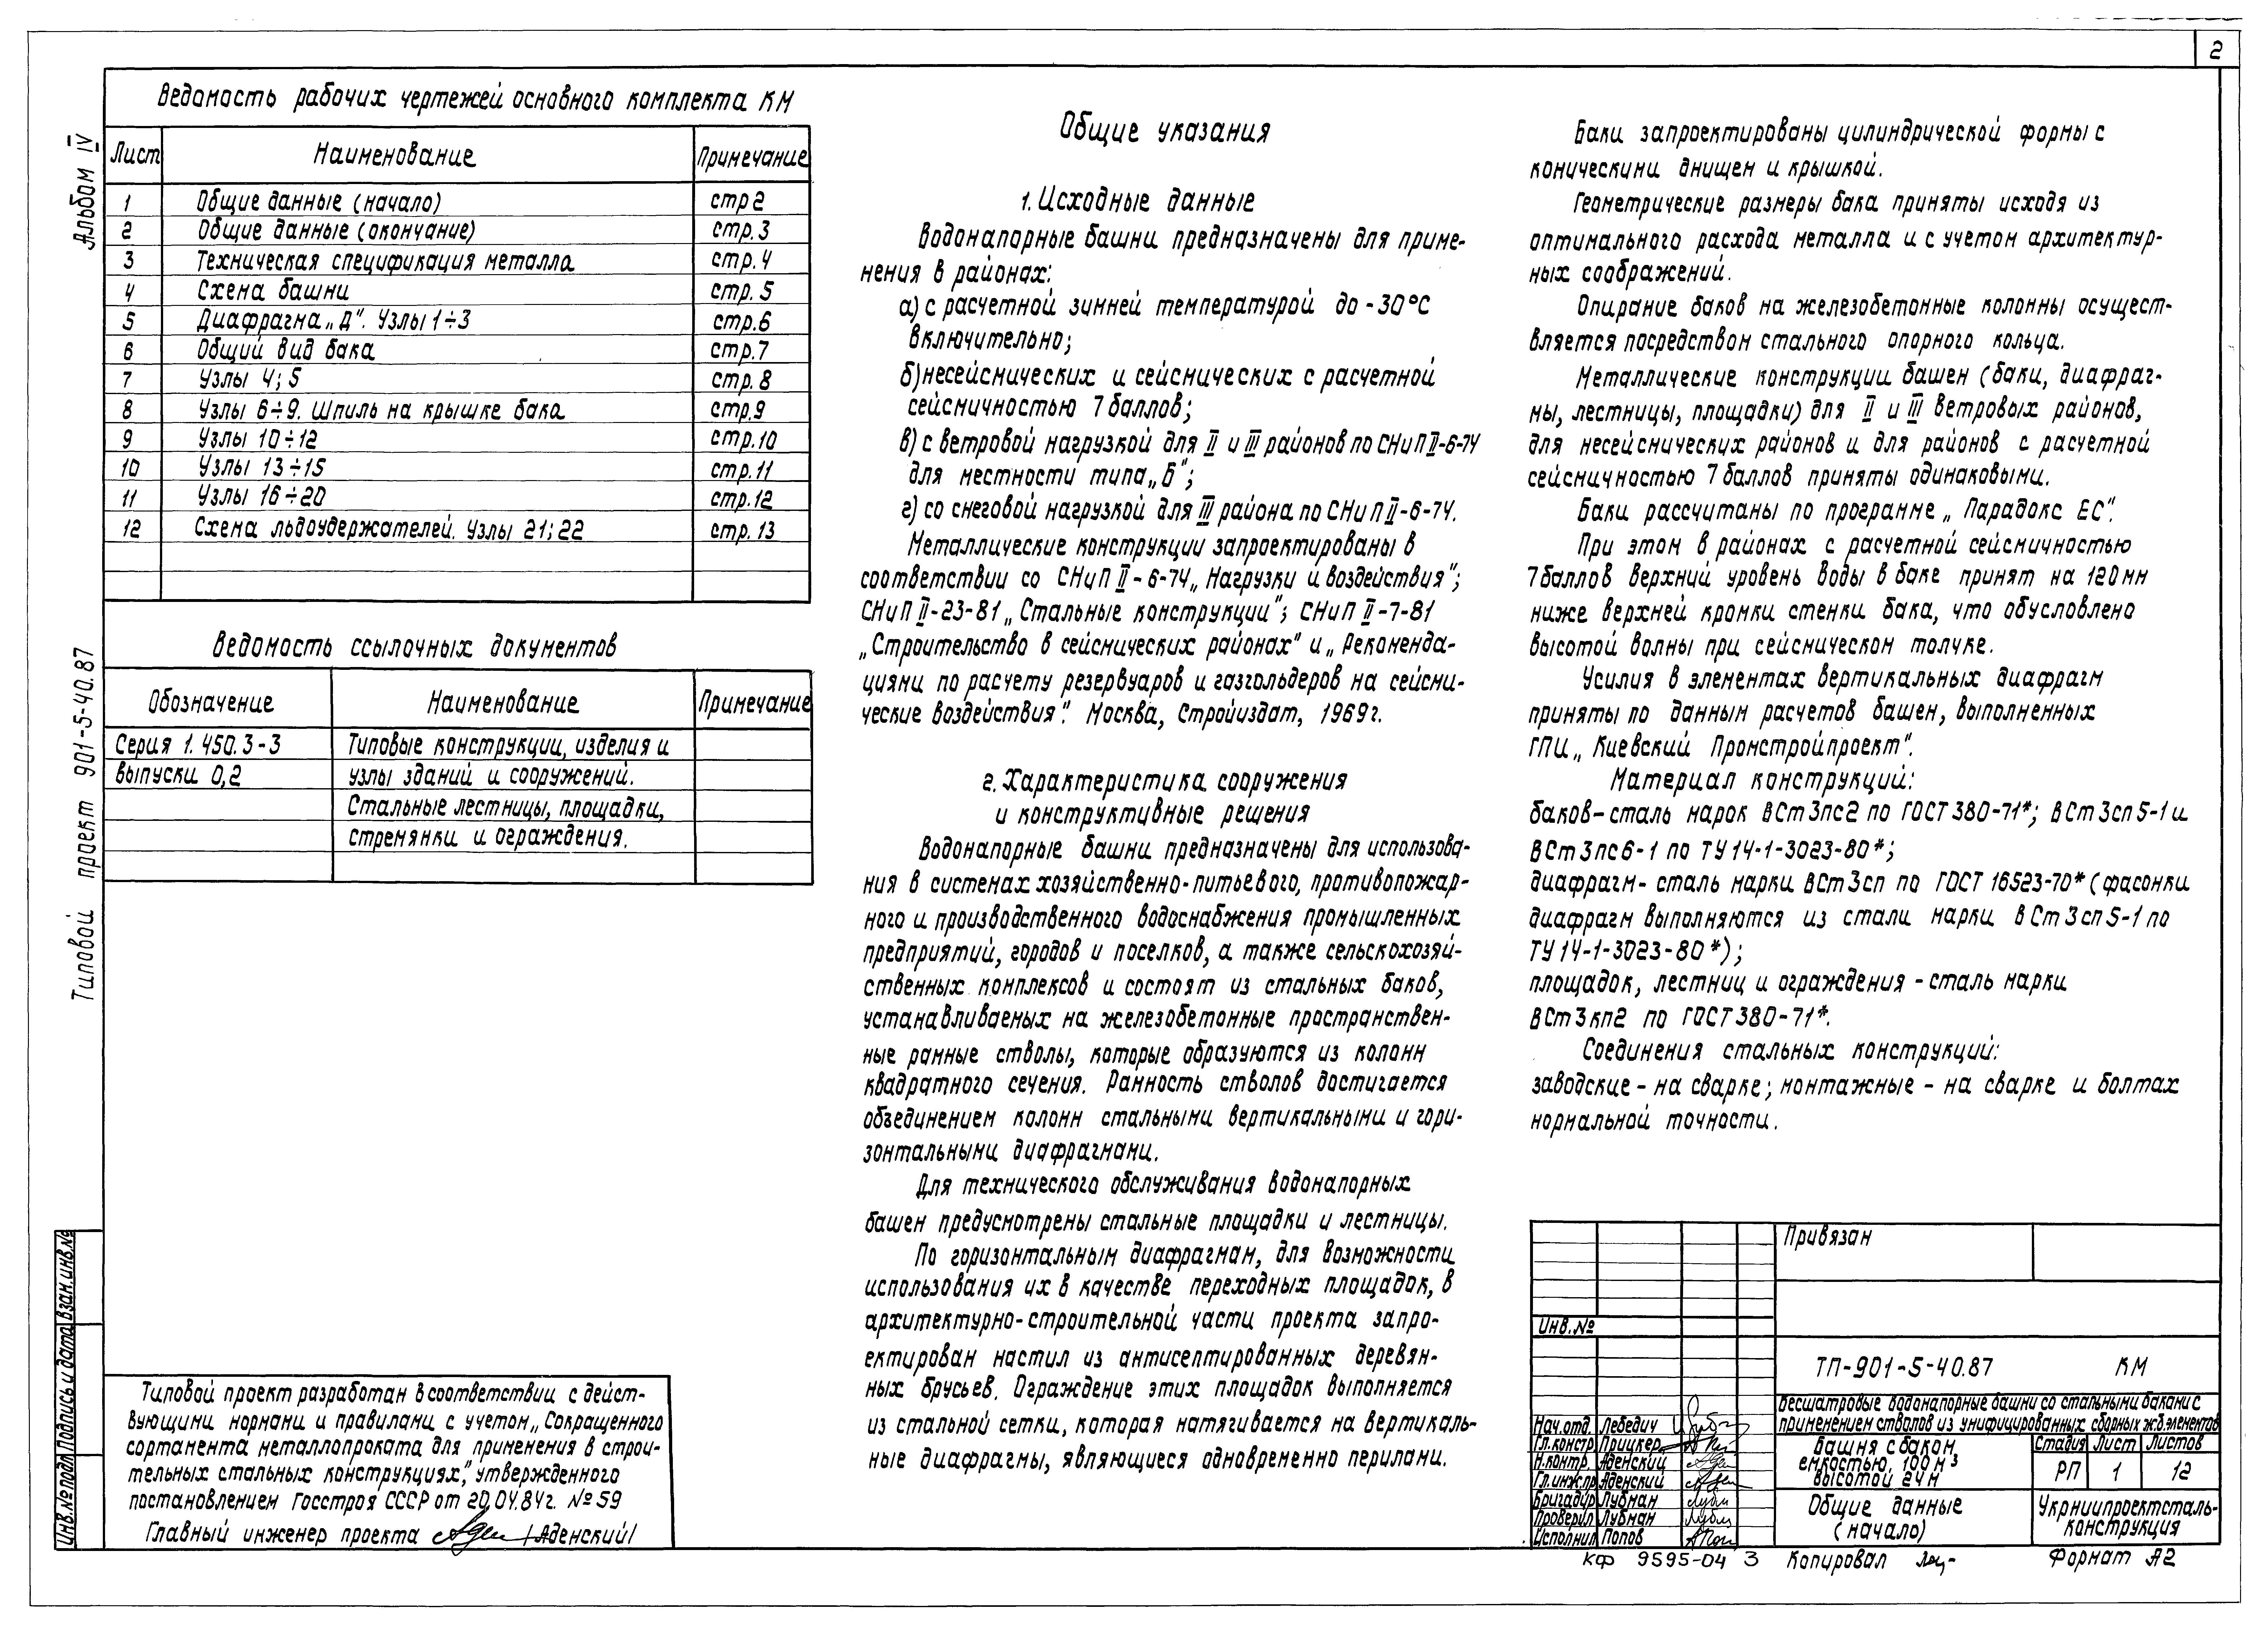 2
Альбом IV
Типовой проект 901-5-40.87
Ведомость рабочих чертежей основного комплекта КМ
Лист Наименование Примечание
1 Общие данные (начало) стр2
2 Общие данные (окончание) стр.3
3 Техническая спецификация металла стр.4
4 Схема башни стр.5
5 Диафрагма „Д". Узлы 1÷3 стр.6
6 Общий вид бака стр.7
7 Узлы 4; 5 стр.8
8 Узлы 6÷9. Шпиль на крышке бака стр.9
9 Узлы 10÷12 стр.10
10 Узлы 13÷15 стр.11
11 Узлы 16÷20 стр.12
12 Схема льдоудержателей. Узлы 21; 22 стр.13
Ведомость ссылочных документов
Обозначение Наименование Примечание
Серия 1.450.3-3 Типовые конструкции, изделия и
выпуски 0,2 узлы зданий и сооружений.
Стальные лестницы, площадки,
стремянки и ограждения.
Типовой проект разработан в соответствии с дейст-
вующими нормами и правилами с учетом „Сокращенного
сортамента металлопроката для применения в строи-
тельных стальных конструкциях", утвержденного
постановлением Госстроя СССР от 20.04.84г. №59
Главный инженер проекта /Аденский/
Общие указания
1. Исходные данные
Водонапорные башни предназначены для приме-
нения в районах:
а) с расчетной зимней температурой до -30°С
включительно;
б) несейсмических и сейсмических с расчетной
сейсмичностью 7 баллов;
в) с ветровой нагрузкой для II и III районов по СНиП II-6-74
для местности типа „Б";
г) со снеговой нагрузкой для III района по СНиП II-6-74.
Металлические конструкции запроектированы в
соответствии со СНиП II-6-74 „Нагрузки и воздействия";
СНиП II-23-81 „Стальные конструкции"; СНиП II-7-81
„Строительство в сейсмических районах" и „Рекоменда-
циями по расчету резервуаров и газгольдеров на сейсми-
ческие воздействия". Москва, Стройиздат, 1969г.
2. Характеристика сооружения
и конструктивные решения
Водонапорные башни предназначены для использова-
ния в системах хозяйственно-питьевого, противопожар-
ного и производственного водоснабжения промышленных
предприятий, городов и поселков, а также сельскохозяй-
ственных комплексов и состоят из стальных баков,
устанавливаемых на железобетонные пространствен-
ные рамные стволы, которые образуются из колонн
квадратного сечения. Рамность стволов достигается
объединением колонн стальными вертикальными и гори-
зонтальными диафрагмами.
Для технического обслуживания водонапорных
башен предусмотрены стальные площадки и лестницы.
По горизонтальным диафрагмам, для возможности
использования их в качестве переходных площадок, в
архитектурно-строительной части проекта запро-
ектирован настил из антисептированных деревян-
ных брусьев. Ограждение этих площадок выполняется
из стальной сетки, которая натягивается на вертикаль-
ные диафрагмы, являющиеся одновременно перилами.
Баки запроектированы цилиндрической формы с
коническими днищем и крышкой.
Геометрические размеры бака приняты исходя из
оптимального расхода металла и с учетом архитектур-
ных соображений.
Опирание баков на железобетонные колонны осущест-
вляется посредством стального опорного кольца.
Металлические конструкции башен (баки, диафраг-
мы, лестницы, площадки) для II и III ветровых районов,
для несейсмических районов и для районов с расчетной
сейсмичностью 7 баллов приняты одинаковыми.
Баки рассчитаны по программе „Парадокс ЕС".
При этом в районах с расчетной сейсмичностью
7 баллов верхний уровень воды в баке принят на 120мм
ниже верхней кромки стенки бака, что обусловлено
высотой волны при сейсмическом толчке.
Усилия в элементах вертикальных диафрагм
приняты по данным расчетов башен, выполненных
ГПИ „Киевский Промстройпроект".
Материал конструкций:
баков-сталь марок ВСт3пс2 по ГОСТ 380-71*; ВСт3сп5-1 и
ВСт3пс6-1 по ТУ 14-1-3023-80*;
диафрагм-сталь марки ВСт3сп по ГОСТ 16523-70* (фасонки
диафрагм выполняются из стали марки ВСт3сп5-1 по
ТУ 14-1-3023-80*);
площадок, лестниц и ограждения-сталь марки
ВСт3кп2 по ГОСТ 380-71*.
Соединения стальных конструкций:
заводские-на сварке; монтажные-на сварке и болтах
нормальной точности.
Привязан
Инв.№
ТП-901-5-40.87 КМ
Бесшатровые водонапорные башни со стальными баками с
применением стволов из унифицированных сборных ж.б.элементов
Нач.отд. Лебедич
Гл.констр Прицкер
Н.контр. Аденский
Гл.инж.пр Аденский
Бригадир Лубман
Проверил Лубман
Исполнил Попов
Башня с баком,
емкостью, 100м³
высотой 24м
Стадия Лист Листов
РП 1 12
Общие данные
(начало)
Укрниипроектсталь-
конструкция
Инв.№подл Подпись и дата Взам.инв.№
КФ 9595-04 3 Копировал Формат А2